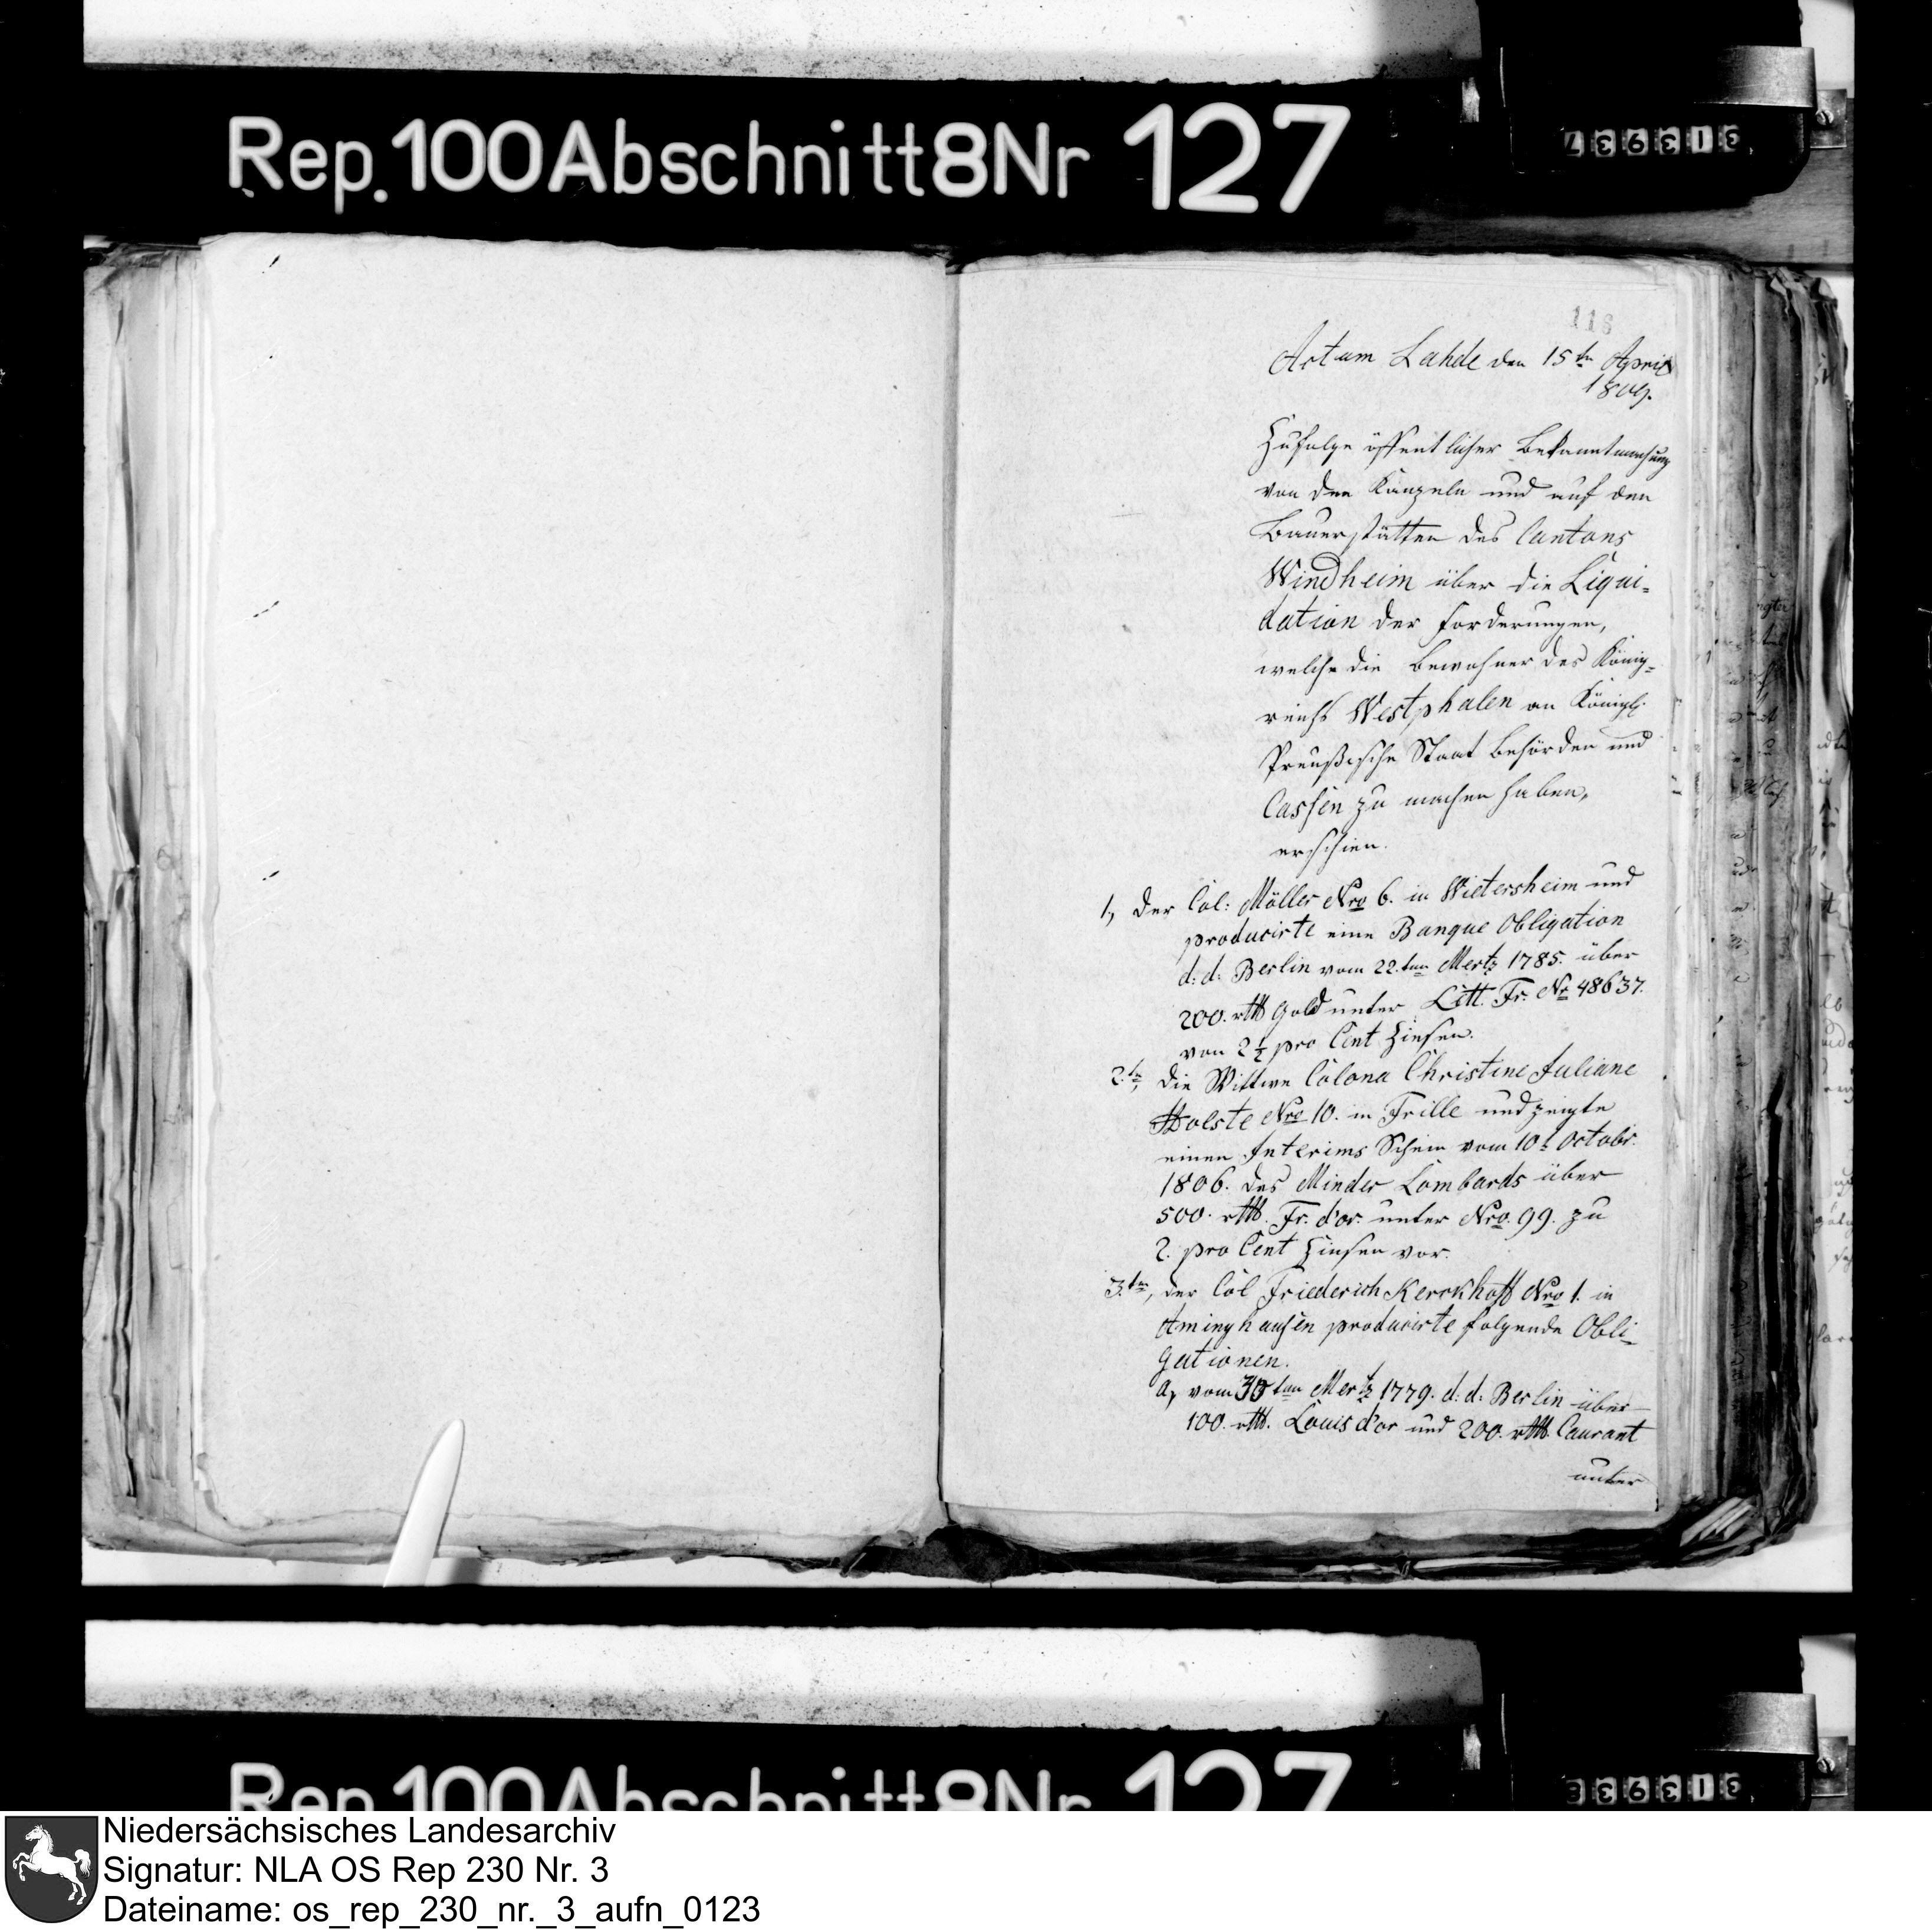 Rep. 100 Abschnitt 8 Nr 127
313937
116
Actum Lahde den 15tn April
1809.
Zufolge öffentlicher Bekanntmachung
von den Kanzeln und auf den
Bauerstätten des Cantons
Windheim über die Liqui-
dation der Forderungen,
welche die Bewohner des König-
reichs Westphalen an Königl.
Preußische Staat Behörden und
Cassen zu machen haben,
erschien.
1, der Col: Möller Nro 6. in Wietersheim und
producirte eine Banque Obligation
d: d: Berlin vom 22.ten Mertz 1785. über
200. rthl Gold unter Litt. Fr. No 48637.
von 2 ½ pro Cent Zinsen.
2.tn, die Wittwe Colona Christine Juliane
Holste Nro 10. in Frille und zeigte
einen Interims Schein vom 10t Octobr.
1806. des Minder Lombards über
500. rthl. Fr. d'or. unter Nro. 99. zu
2. pro Cent Zinsen vor.
3.ten, der Col Friederich Kerckhoff Nro 1. in
Aminghausen producirte folgende Obli-
gationen.
a, vom 30ten Mertz 1779. d: d: Berlin über
100. rthl. Louis d'or und 200. rthl. Courant
unter
Rep. 100 Abschnitt 8 Nr 127
313938
Niedersächsisches Landesarchiv
Signatur: NLA OS Rep 230 Nr. 3
Dateiname: os_rep_230_nr._3_aufn_0123